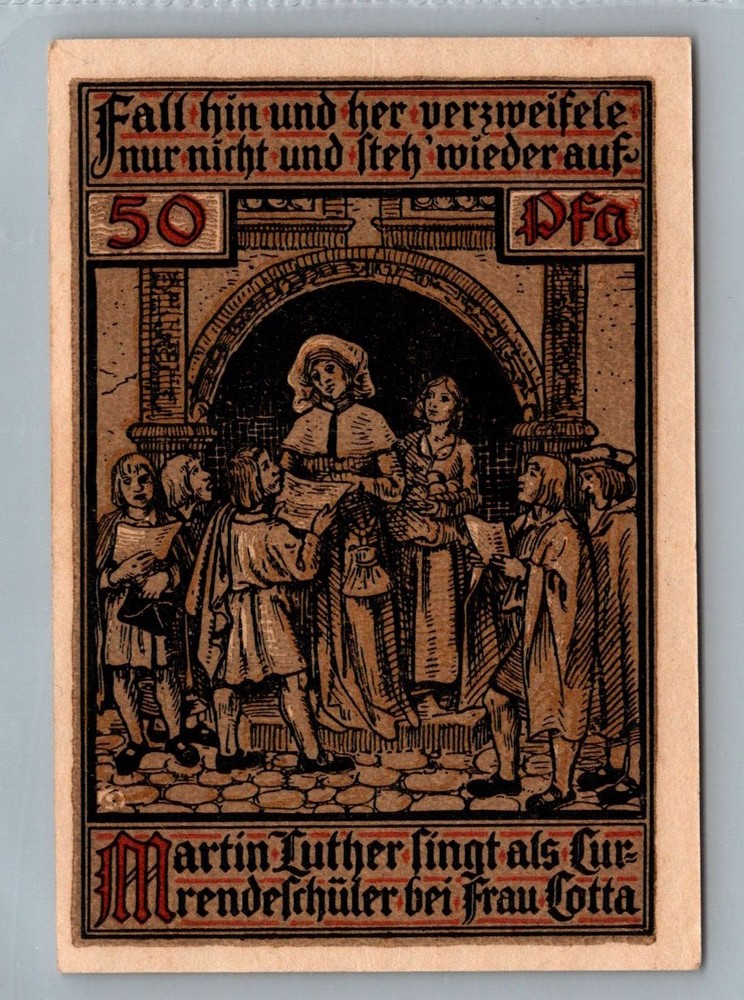 Fall hin und her verzweifele
nur nicht und steh' wieder auf
50 Pfg
Martin Luther singt als Cur=
rendeschüler bei Frau Cotta